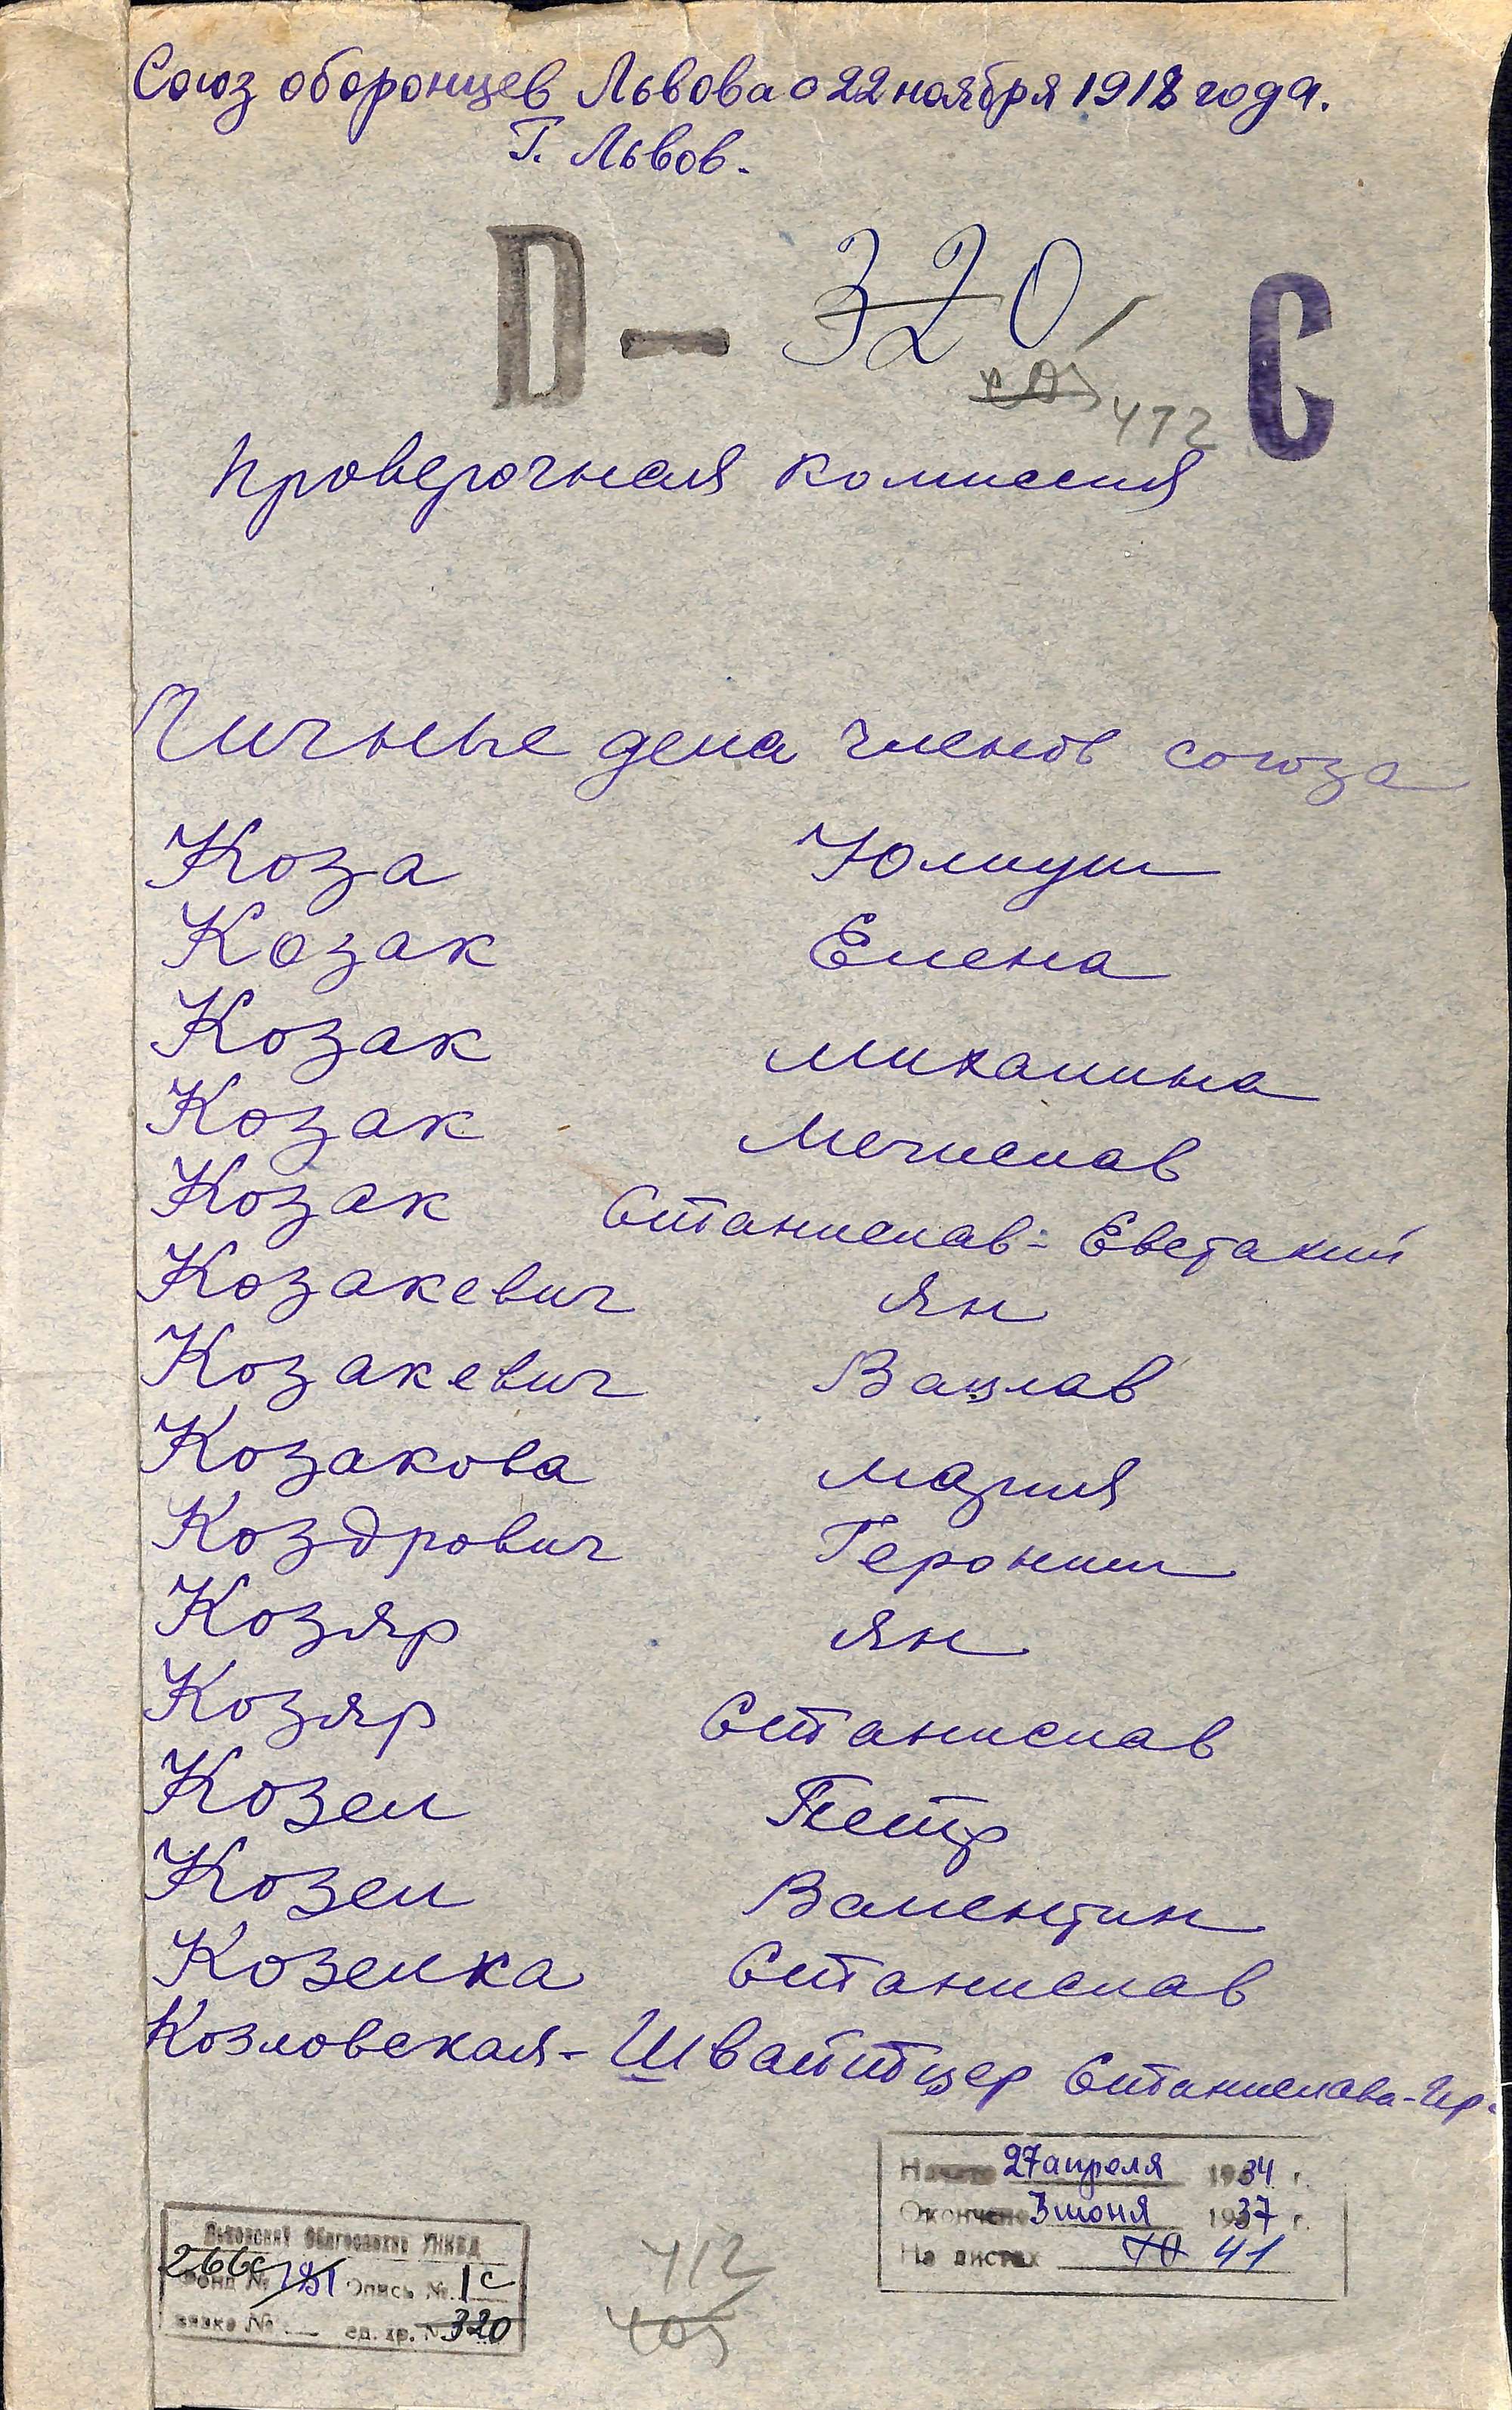 Союз оборонцев Львова с 22 ноября 1918 года.
Г. Львов.
D – 320 C
412
Проверочная комиссия
Личные дела членов союза
Коза Юлиуш
Козак Елена
Козак Михалина
Козак Мечислав
Козак Станислав-Евстахий
Козакевич Ян
Козакевич Вацлав
Козакова Мария
Коздрович Героним
Козяр Ян
Козяр Станислав
Козел Петр
Козел Валентин
Козелка Станислав
Козловская-Швайтцер Станислава-Ир.
Начато 27 апреля 1934 г.
Окончено 3 июня 1937 г.
На листах 41
Львовский Облгосархив УНКВД
266с
Фонд № Опись № 1с
вязка № ед. хр. № 320
412
405